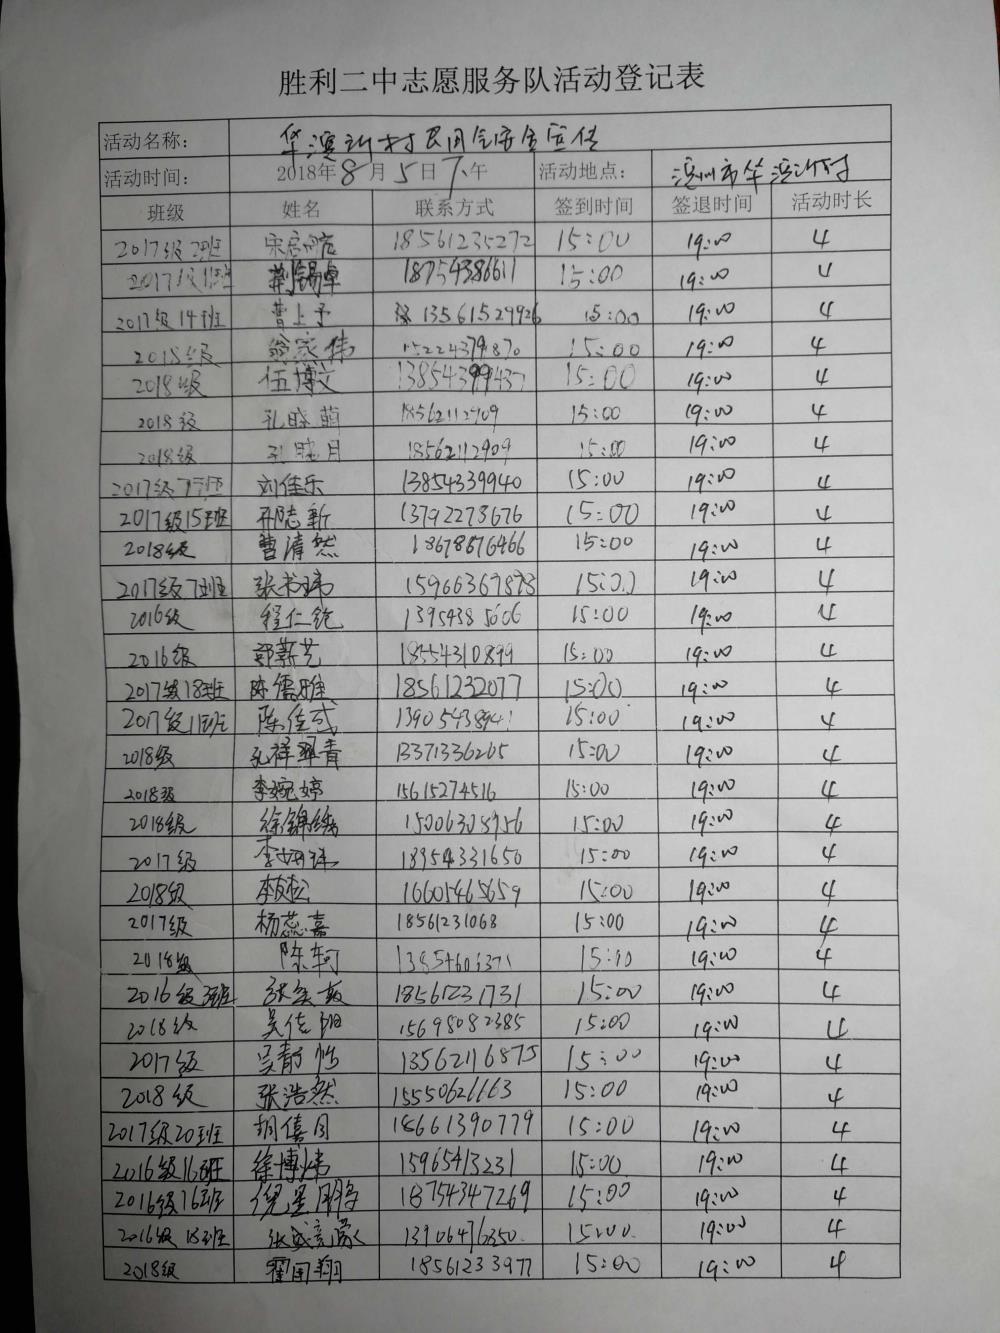 胜利二中志愿服务队活动登记表
活动名称： 华滨新村民用气安全宣传
活动时间： 2018年8月5日下午 活动地点： 滨州市华滨新村
班级 姓名 联系方式 签到时间 签退时间 活动时长
2017级 18561235272 15:00 19:00 4
18754386611 15:00 19:00 4
2017级14班 曹上予 13561529926 15:00 19:00 4
2018级 15:00 19:00 4
2018级 伍博文 15:00 19:00 4
2018级 孔晓萌 18562112909 15:00 19:00 4
2018级 孔晓月 18562112909 15:00 19:00 4
2017级 刘佳乐 13854339940 15:00 19:00 4
2017级15班 13792278676 15:00 19:00 4
2018级 曹清然 18678676466 15:00 19:00 4
2017级7班 张书玮 15:00 19:00 4
2016级 程仁 15:00 19:00 4
2016级 郭薪艺 18554310899 15:00 19:00 4
2017级18班 陈儒雅 18561232077 15:00 19:00 4
2017级11班 陈佳 15:00 19:00 4
2018级 孔祥 13371336265 15:00 19:00 4
2018级 李婉婷 15615274516 15:00 19:00 4
2018级 徐锦绣 15006308956 15:00 19:00 4
2017级 18954331650 15:00 19:00 4
2018级 16601465659 15:00 19:00 4
2017级 杨蕊嘉 18561231068 15:00 19:00 4
2018级 陈轲 13854606371 15:00 19:00 4
2016级 18561231731 15:00 19:00 4
2018级 吴佳阳 15698082385 15:00 19:00 4
2017级 吴静怡 13562116875 15:00 19:00 4
2018级 张浩然 15550626663 15:00 19:00 4
2017级20班 胡僖月 18661390779 15:00 19:00 4
2016级16班 徐博炜 15965413231 15:00 19:00 4
2016级16班 倪星 18754347269 15:00 19:00 4
2016级18班 15:00 19:00 4
2018级 霍国翔 18561233977 15:00 19:00 4